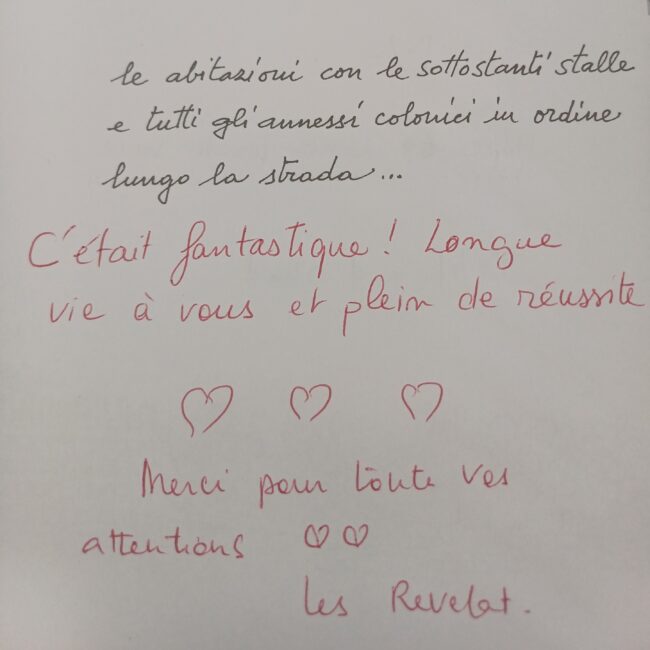 le abitazioni con le sottostanti stalle
e tutti gli annessi colonici in ordine
lungo la strada...
C'était fantastique! Longue
vie à vous et plein de réussite
Merci pour toute ves
attentions
Les Revelat.